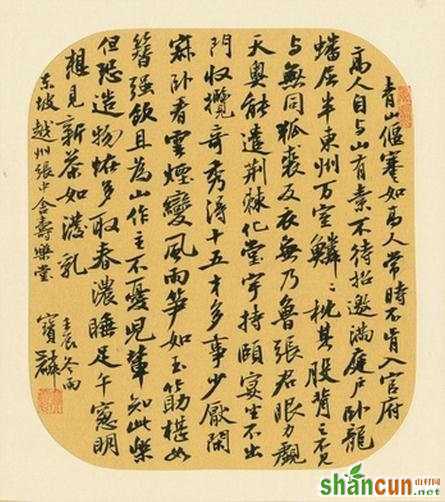 青山偃蹇如高人常時不肯入官府
高人自與山有素不待招邀滿庭戶卧龍
蟠屈半東州万室鱗〻枕其股背之不見
与無同狐裘反衣無乃魯張君眼力覷
天奧能遣荆棘化堂宇持頤宴坐不出
門收攬奇秀得十五才多事少厭閑
寂卧看雲煙變風雨筍如玉筯椹如
簪强飲且為山作主不憂兒輩知此樂
但恐造物怪多取春濃睡足午窗明
想見新茶如潑乳
東坡越州張中舍壽樂堂
壬辰冬雨
寶麟
shancun.net
山村网